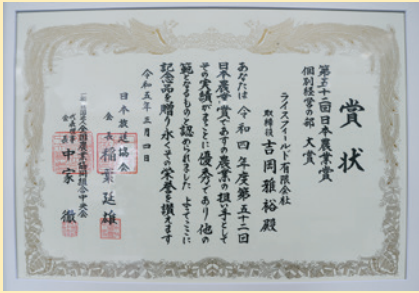 賞状
第五十二回日本農業賞
個別経営の部 大賞
ライスフィールド有限会社
取締役 吉岡雅裕殿
あなたは令和四年度第五十二回
日本農業賞であすの農業の担い手として
その実績がまことに優秀であり他の
範となるものと認められました よってここに
記念品を贈り永くその栄誉を讃えます
令和五年三月四日
日本放送協会
会長 稲葉延雄
一般社団法人全国農業協同組合中央会
代表理事会長 中家徹